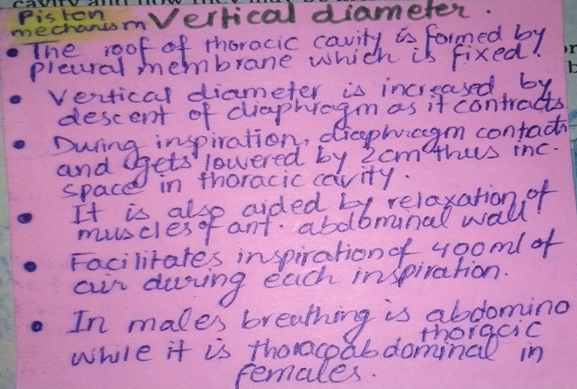 Piston mechanism Vertical diameter.
• The roof of thoracic cavity is formed by
pleural membrane which is fixed.
• Vertical diameter is increased by
descent of diaphragm as it contracts
• During inspiration, diaphragm contacts
and gets lowered by 2cm thus inc.
space in thoracic cavity.
• It is also aided by relaxation of
muscles of ant. abdominal wall
• Facilitates inspiration of 400 ml of
air during each inspiration.
• In males breathing is abdomino
thoracic
while it is thoracoabdominal in
females.